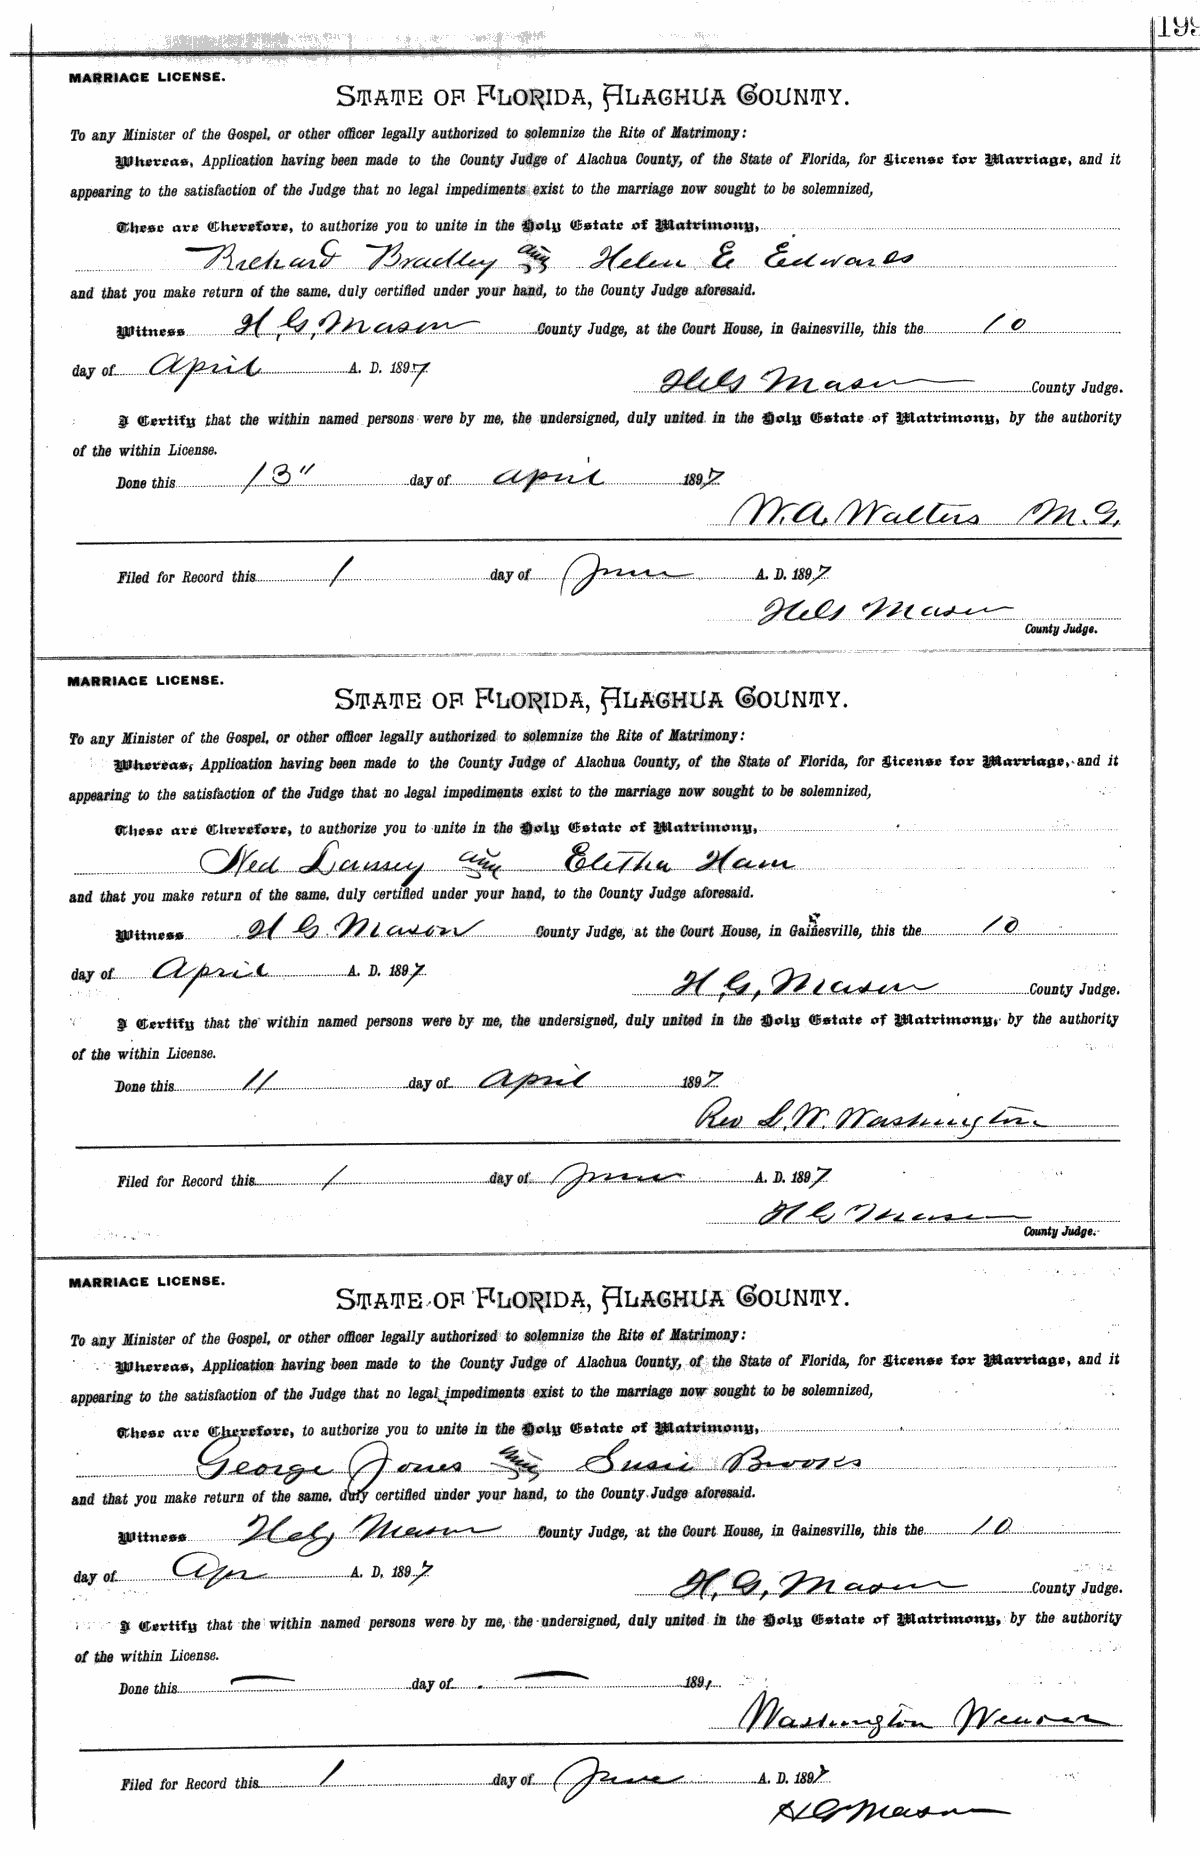 199
MARRIAGE LICENSE.
STATE OF FLORIDA, ALACHUA COUNTY.
To any Minister of the Gospel, or other officer legally authorized to solemnize the Rite of Matrimony:
Whereas, Application having been made to the County Judge of Alachua County, of the State of Florida, for License for Marriage, and it
appearing to the satisfaction of the Judge that no legal impediments exist to the marriage now sought to be solemnized,
These are Therefore, to authorize you to unite in the Holy Estate of Matrimony,
Richard Bradley and Helen E Edwards
and that you make return of the same, duly certified under your hand, to the County Judge aforesaid.
Witness H. G. Mason County Judge, at the Court House, in Gainesville, this the 10
day of April A. D. 1897 HG Mason County Judge.
I Certify that the within named persons were by me, the undersigned, duly united in the Holy Estate of Matrimony, by the authority
of the within License.
Done this 13" day of April 1897
W. A. Walters M. G.
Filed for Record this 1 day of June A. D. 1897
HG Mason
County Judge.
MARRIAGE LICENSE.
STATE OF FLORIDA, ALACHUA COUNTY.
To any Minister of the Gospel, or other officer legally authorized to solemnize the Rite of Matrimony:
Whereas, Application having been made to the County Judge of Alachua County, of the State of Florida, for License for Marriage, and it
appearing to the satisfaction of the Judge that no legal impediments exist to the marriage now sought to be solemnized,
These are Therefore, to authorize you to unite in the Holy Estate of Matrimony,
Ned and Eletha Ham
and that you make return of the same, duly certified under your hand, to the County Judge aforesaid.
Witness H G Mason County Judge, at the Court House, in Gainesville, this the 10
day of April A. D. 1897 H. G. Mason County Judge.
I Certify that the within named persons were by me, the undersigned, duly united in the Holy Estate of Matrimony, by the authority
of the within License.
Done this 11 day of April 1897
Rev L. W. Washington
Filed for Record this 1 day of June A. D. 1897
H G Mason
County Judge.
MARRIAGE LICENSE.
STATE OF FLORIDA, ALACHUA COUNTY.
To any Minister of the Gospel, or other officer legally authorized to solemnize the Rite of Matrimony:
Whereas, Application having been made to the County Judge of Alachua County, of the State of Florida, for License for Marriage, and it
appearing to the satisfaction of the Judge that no legal impediments exist to the marriage now sought to be solemnized,
These are Therefore, to authorize you to unite in the Holy Estate of Matrimony,
George Jones and Susie Brooks
and that you make return of the same, duly certified under your hand, to the County Judge aforesaid.
Witness HG Mason County Judge, at the Court House, in Gainesville, this the 10
day of Apr A. D. 1897 H. G. Mason County Judge.
I Certify that the within named persons were by me, the undersigned, duly united in the Holy Estate of Matrimony, by the authority
of the within License.
Done this — day of — 189
Washington
Filed for Record this 1 day of June A. D. 1897
H G Mason